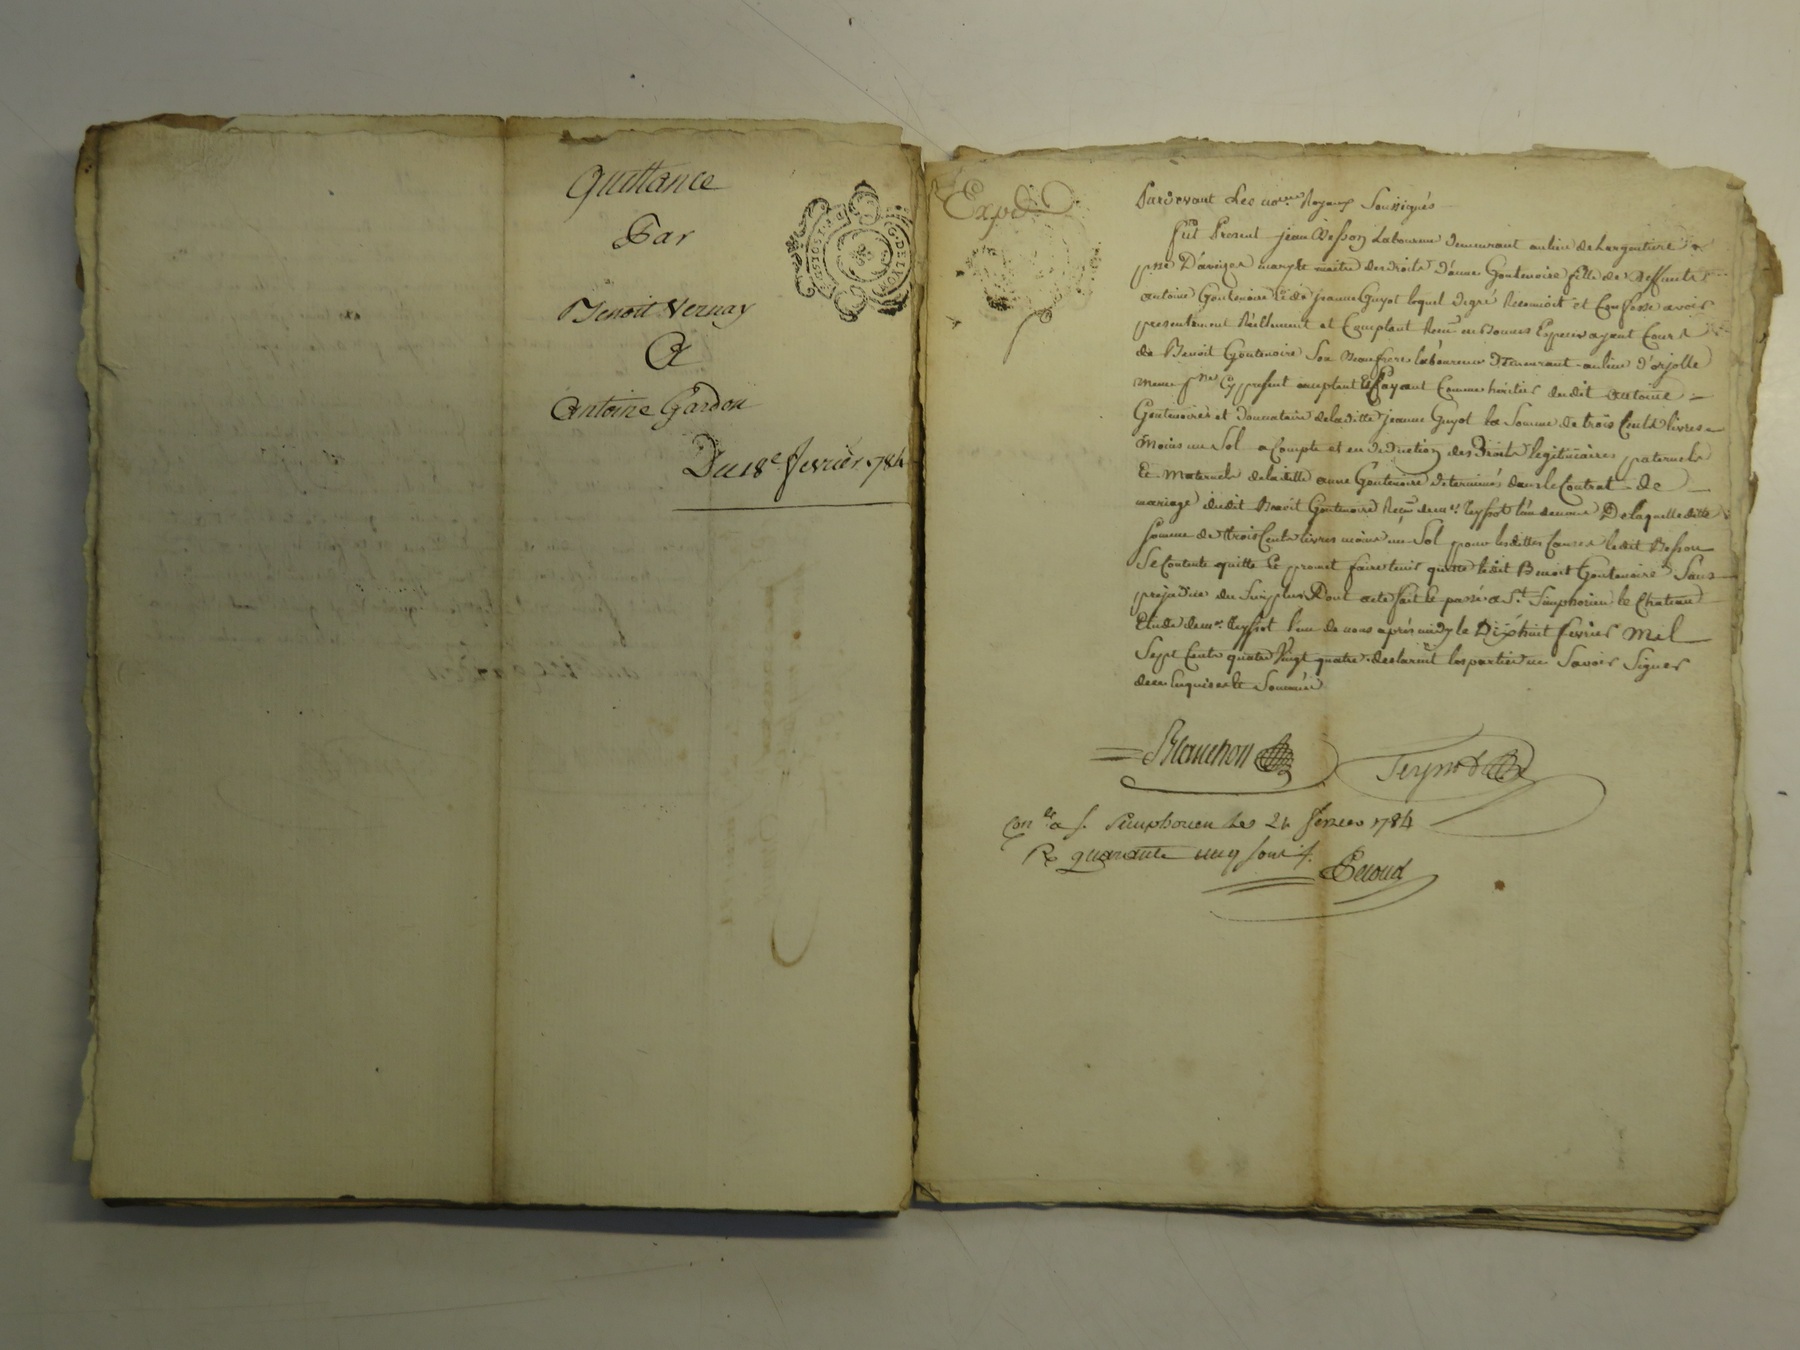 Quittance
Par
Benoit Vernay
A
Antoine Gardon
Du 18e. fevrier 1784
Expd.
Pardevant Les no.res Royaux Soussignés
fut Present jean Besson Laboureur demeurant au lieu de Largentiere
p.sse D'aveizes mary et maitre des droits D'anne Goutenoire fille de deffunts
antoine Goutenoire et de jeanne Guyot lequel degré Reconnoit et Confesse avoir
presentement Réellement et Comptant Reçu en Bonnes Especes ayant Cours
de Benoit Goutenoire Son Beaufrere laboureur Demeurant au lieu d'orjolle
meme p.sse Cy present acceptant Et Payant Comme heritier dudit antoine
Goutenoire et donnataire de laditte jeanne Guyot la Somme de trois Cents livres
moins un Sol a Compte et en deduction des Droits legitimaires paternels
Et Maternels de laditte anne Goutenoire determinés dans le Contrat de
mariage dudit Benoit Goutenoire Reçu de m.e Teyssot l'un de nous De laquelle ditte
somme de trois Cents livres moins un Sol pour lesdittes Causes ledit Besson
Se Contente quitte Et promet faire tenir quitte ledit Benoit Goutenoire Sans
prejudice du Surplus Dont acte fait et passé a S.t Simphorien le Chateau
Etude de m.e Teyssot l'un de nous après midy le Dix huit fevrier Mil
Sept Cents quatre Vingt quatre declarent les parties ne Savoir Signer
de ce Enquises et Sommées
Blanchon
Con.lé a S. Simphorien le 21 fevrier 1784
R. quarante cinq sous